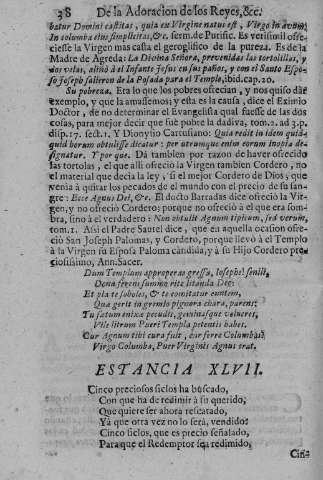 38 De la Adoracion de los Reyes, &c.
batur Domini castitas, quia ex Virgine natus est, Virgo in avum,
In columba eius simplicitas, &c. serm. de Purific. Es verisimil ofre-
ciesse la Virgen mas casta el geroglifico de la pureza. Es de la
Madre de Agreda: La Divina Señora, prevenidas las tortolillas, y
dos velas, aliñò à el Infante Jesus en sus paños, y con el Santo Espo-
so Joseph salieron de la Posada para el Templo, ibid. cap. 20.
Su pobreza. Era lo que los pobres ofrecian, y nos quiso dàr
exemplo, y que la amassemos; y esta es la causa, dice el Eximio
Doctor, de no determinar el Evangelista qual fuesse de las dos
cosas, para mejor decir que fuè pobre la dadiva, tom. 2. ad 3. p.
disp. 17. sect. 1. Y Dionysio Cartusano: Quia reditin idem quid-
quid horum obtulisse dicatur: per utrumque enim eorum inopia de-
signatur. Y por què. Dà tambien por razon de haver ofrecido
las tortolas, el que alli ofreciò la Virgen tambien Cordero, no
el material que decia la ley, si el mejor Cordero de Dios, que
venia à quitar los pecados de el mundo con el precio de su san-
gre: Ecce Agnus Dei, &c. El docto Barradas dice ofreciò la Vir-
gen, y no ofreciò Cordero; porque no ofreciò el que era som-
bra, sino à el verdadero: Non obtulit Agnum tipicum, sed verum,
tom. 1. Assi el Padre Sautel dice, que en aquella ocasion ofre-
ciò San Joseph Palomas, y Cordero, porque llevò à el Templo
à la Virgen su Esposa Paloma candida, y à su Hijo Cordero pre-
ciosissimo, Ann. Sacer.
Dum Templum approperas gressu, Iosephe! senili,
Dona ferens summo rite litanda Deo:
Et pia te soboles, & te comitatur euntem,
Qua gerit in gremio pignora chara, parens:
Tu fatum enixa pecudis, genitasque volucres,
Vile litrum Pueri Templa petentis habes.
Cur Agnum tibi cura fuit, cur ferre Columbas?
Virgo Columba, Puer Virginis Agnus erat.
ESTANCIA XLVII.
Cinco preciosos siclos ha buscado,
Con que ha de redimir à su querido,
Que quiere ser ahora rescatado,
Yà que otra vez no lo serà, vendido:
Cinco siclos, que es precio señalado,
Para que el Redemptor sea redimido,
Cin-